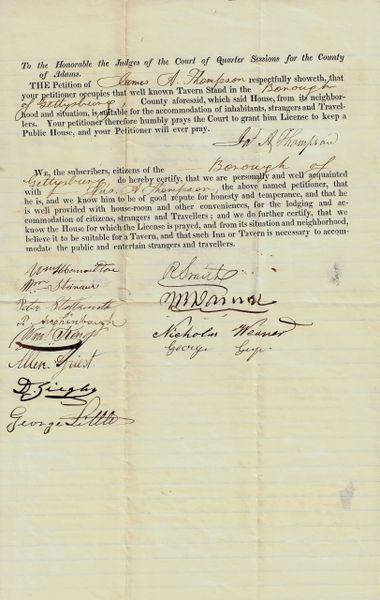 To the Honorable the Judges of the Court of Quarter Sessions for the County
of Adams.
THE Petition of James A. Thompson respectfully showeth, that
your petitioner occupies that well known Tavern Stand in the Borough
of Gettysburg County aforesaid, which said House, from its neighbor-
hood and situation, is suitable for the accommodation of inhabitants, strangers and Travel-
lers. Your petitioner therefore humbly prays the Court to grant him License to keep a
Public House, and your Petitioner will ever pray.
Jas A Thompson
WE, the subscribers, citizens of the Borough of
Gettysburg do hereby certify, that we are personally and well acquainted
with Jas. A Thompson, the above named petitioner, that
he is, and we know him to be of good repute for honesty and temperance, and that he
is well provided with house-room and other conveniences, for the lodging and ac-
commodation of citizens, strangers and Travellers; and we do further certify, that we
know the House for which the License is prayed, and from its situation and neighborhood,
believe it to be suitable for a Tavern, and that such Inn or Tavern is necessary to accom-
modate the public and entertain strangers and travellers.
Wm
R Smith
Wm
Peter
Nicholas Weaver
Wm King
George
Allen
D. Ziegler
George Little